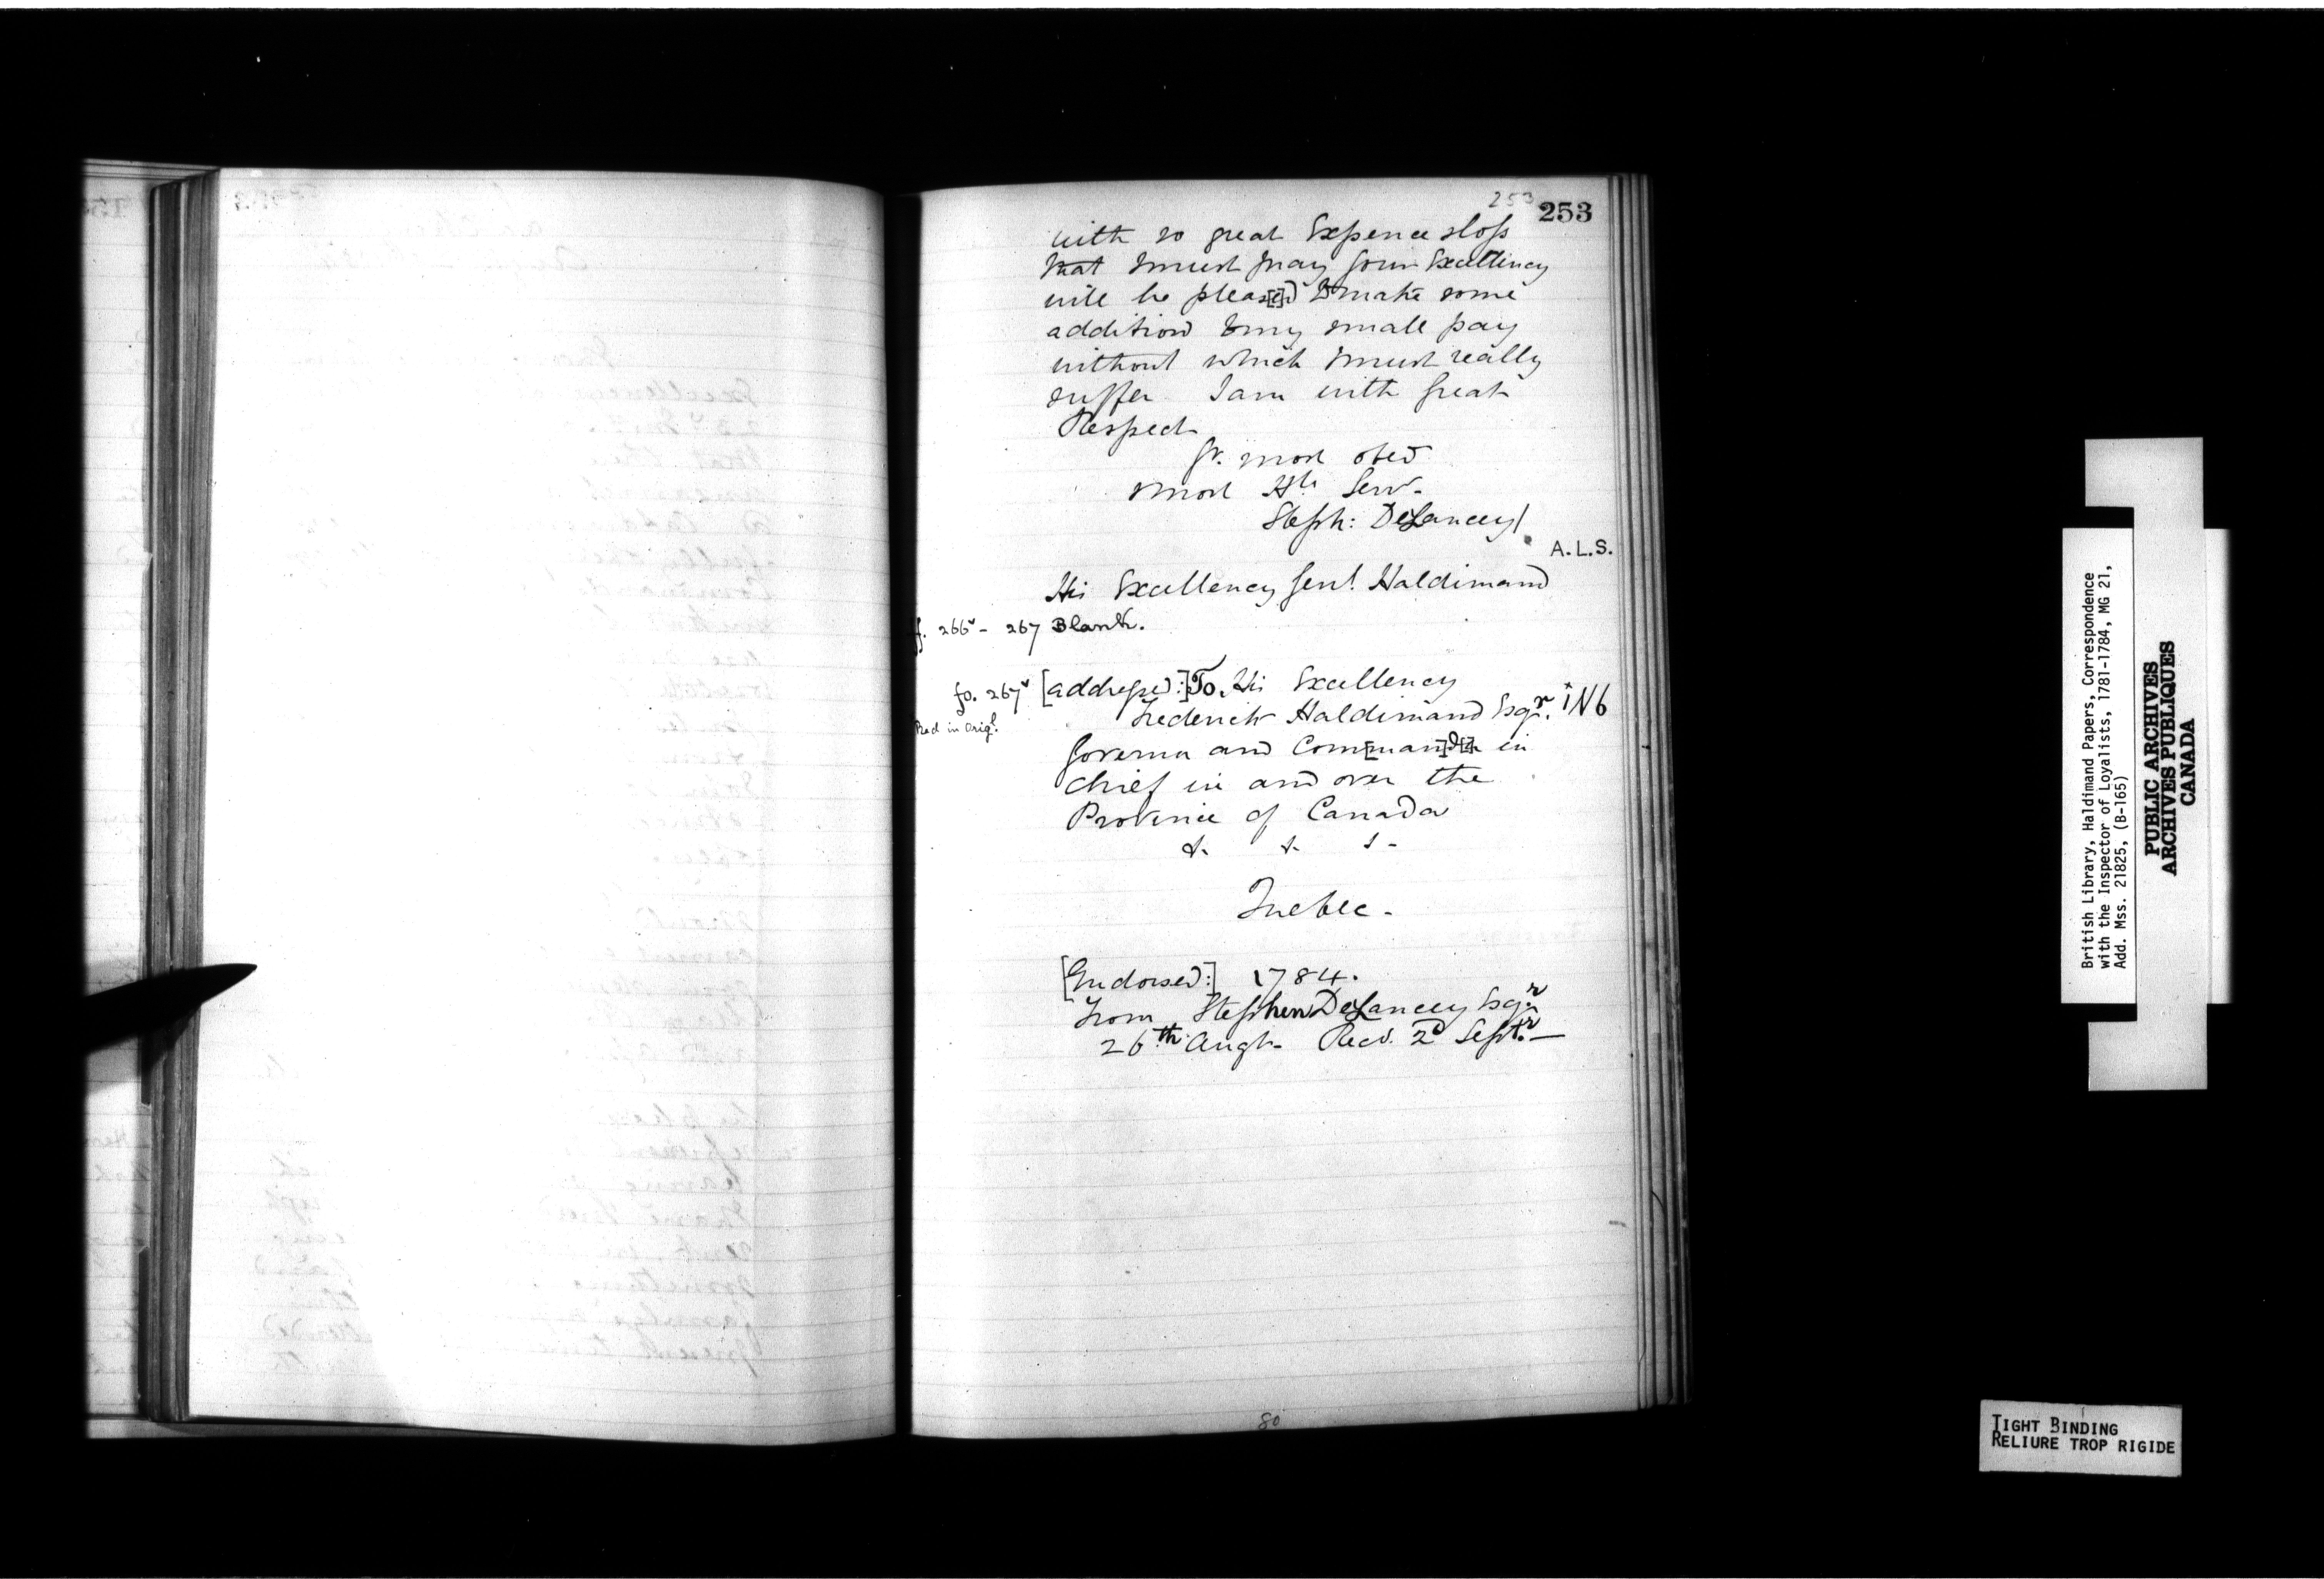 253
253
with so great Expence & loss
that I must pray your Excellency
will be pleas[e]d to make some
addition to my small pay
without which I must really
suffer I am with great
Respect
Yr. most obed
& most Hble Servt.
Steph: DeLancey/
A.L.S.
His Excellency Genl. Haldimand
f. 266v - 267 Blank.
fo. 267v [addressed:] To His Excellency
Frederick Haldimand Esqr.
in orig.l
Governor and Com[man]d[e]r in
chief in and over the
Province of Canada
&. &. &-
Quebec-
[Endorsed:] 1784.
From Stephen DeLancey Esqr
26th Augt- Recd. 2d Septr.—
80
British Library, Haldimand Papers, Correspondence
with the Inspector of Loyalists, 1781-1784, MG 21,
Add. Mss. 21825, (B-165)
PUBLIC ARCHIVES
ARCHIVES PUBLIQUES
CANADA
TIGHT BINDING
RELIURE TROP RIGIDE